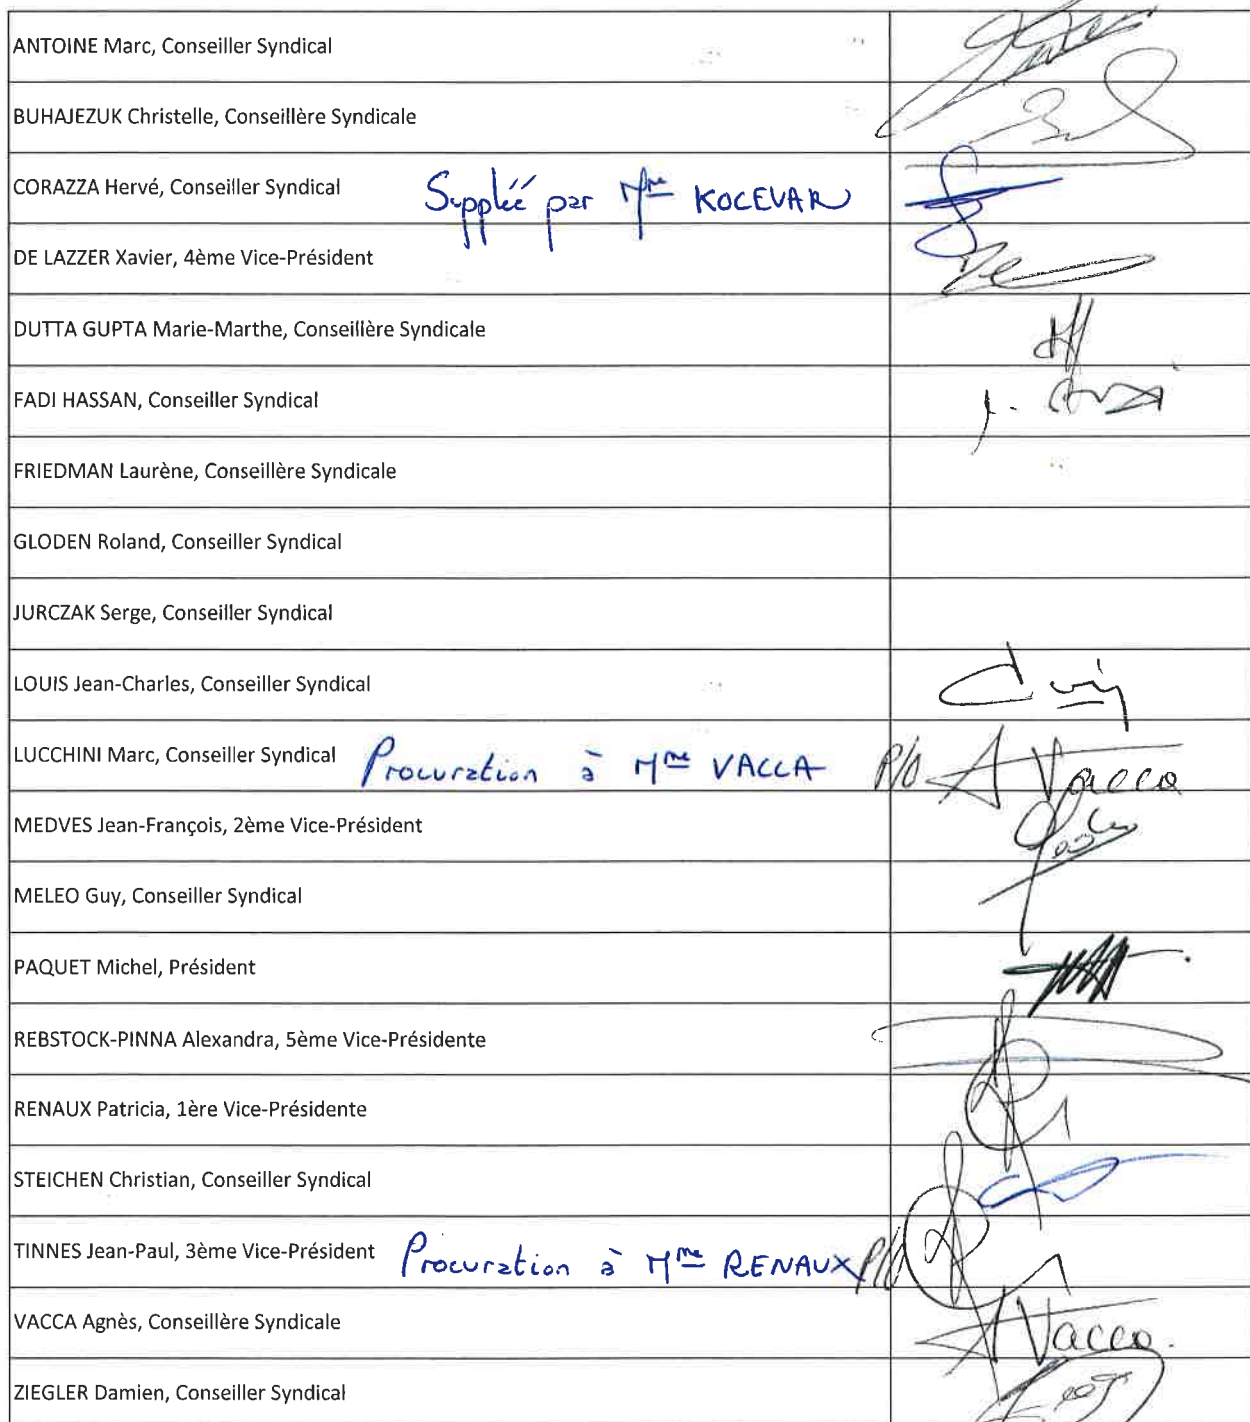 ANTOINE Marc, Conseiller Syndical
BUHAJEZUK Christelle, Conseillère Syndicale
CORAZZA Hervé, Conseiller Syndical Suppléé par Mme KOCEVAR
DE LAZZER Xavier, 4ème Vice-Président
DUTTA GUPTA Marie-Marthe, Conseillère Syndicale
FADI HASSAN, Conseiller Syndical
FRIEDMAN Laurène, Conseillère Syndicale
GLODEN Roland, Conseiller Syndical
JURCZAK Serge, Conseiller Syndical
LOUIS Jean-Charles, Conseiller Syndical
LUCCHINI Marc, Conseiller Syndical Procuration à Mme VACCA P/O A Vacca
MEDVES Jean-François, 2ème Vice-Président
MELEO Guy, Conseiller Syndical
PAQUET Michel, Président
REBSTOCK-PINNA Alexandra, 5ème Vice-Présidente
RENAUX Patricia, 1ère Vice-Présidente
STEICHEN Christian, Conseiller Syndical
TINNES Jean-Paul, 3ème Vice-Président Procuration à Mme RENAUX P/O
VACCA Agnès, Conseillère Syndicale A Vacca.
ZIEGLER Damien, Conseiller Syndical